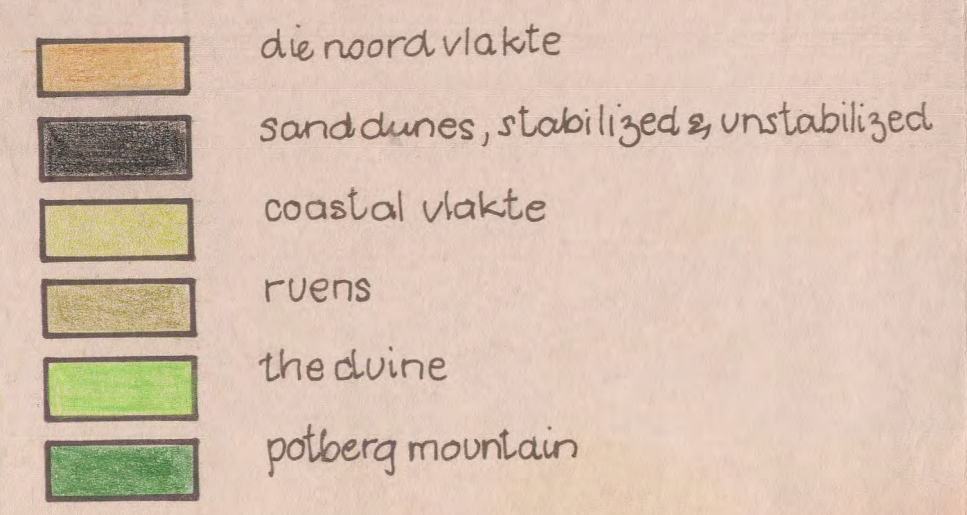 die noord vlakte
sand dunes, stabilized & unstabilized
coastal vlakte
ruens
the duine
potberg mountain